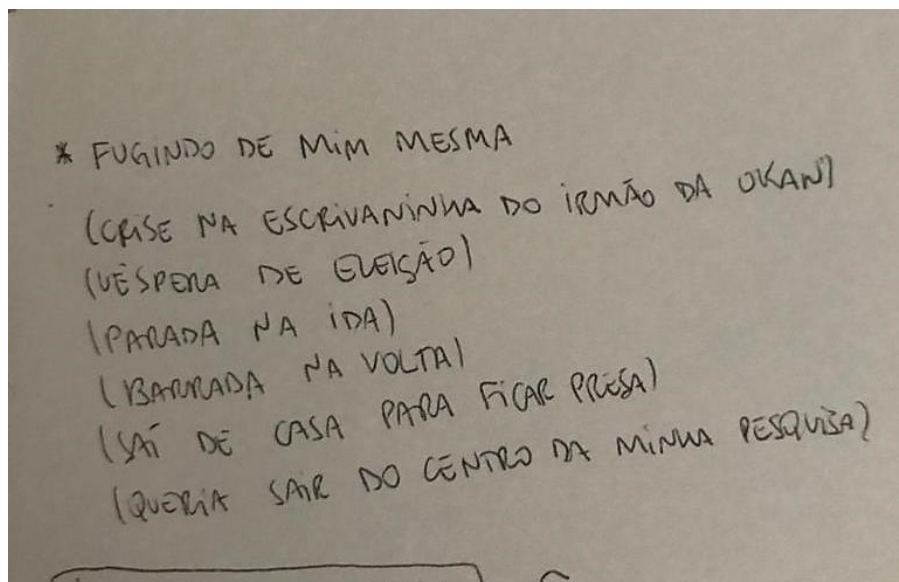 * FUGINDO DE MIM MESMA
(CRISE NA ESCRIVANINHA DO IRMÃO DA OKAN)
(VÉSPERA DE ELEIÇÃO)
(PARADA NA IDA)
(BARRADA NA VOLTA)
(SAÍ DE CASA PARA FICAR PRESA)
(QUERIA SAIR DO CENTRO DA MINHA PESQUISA)